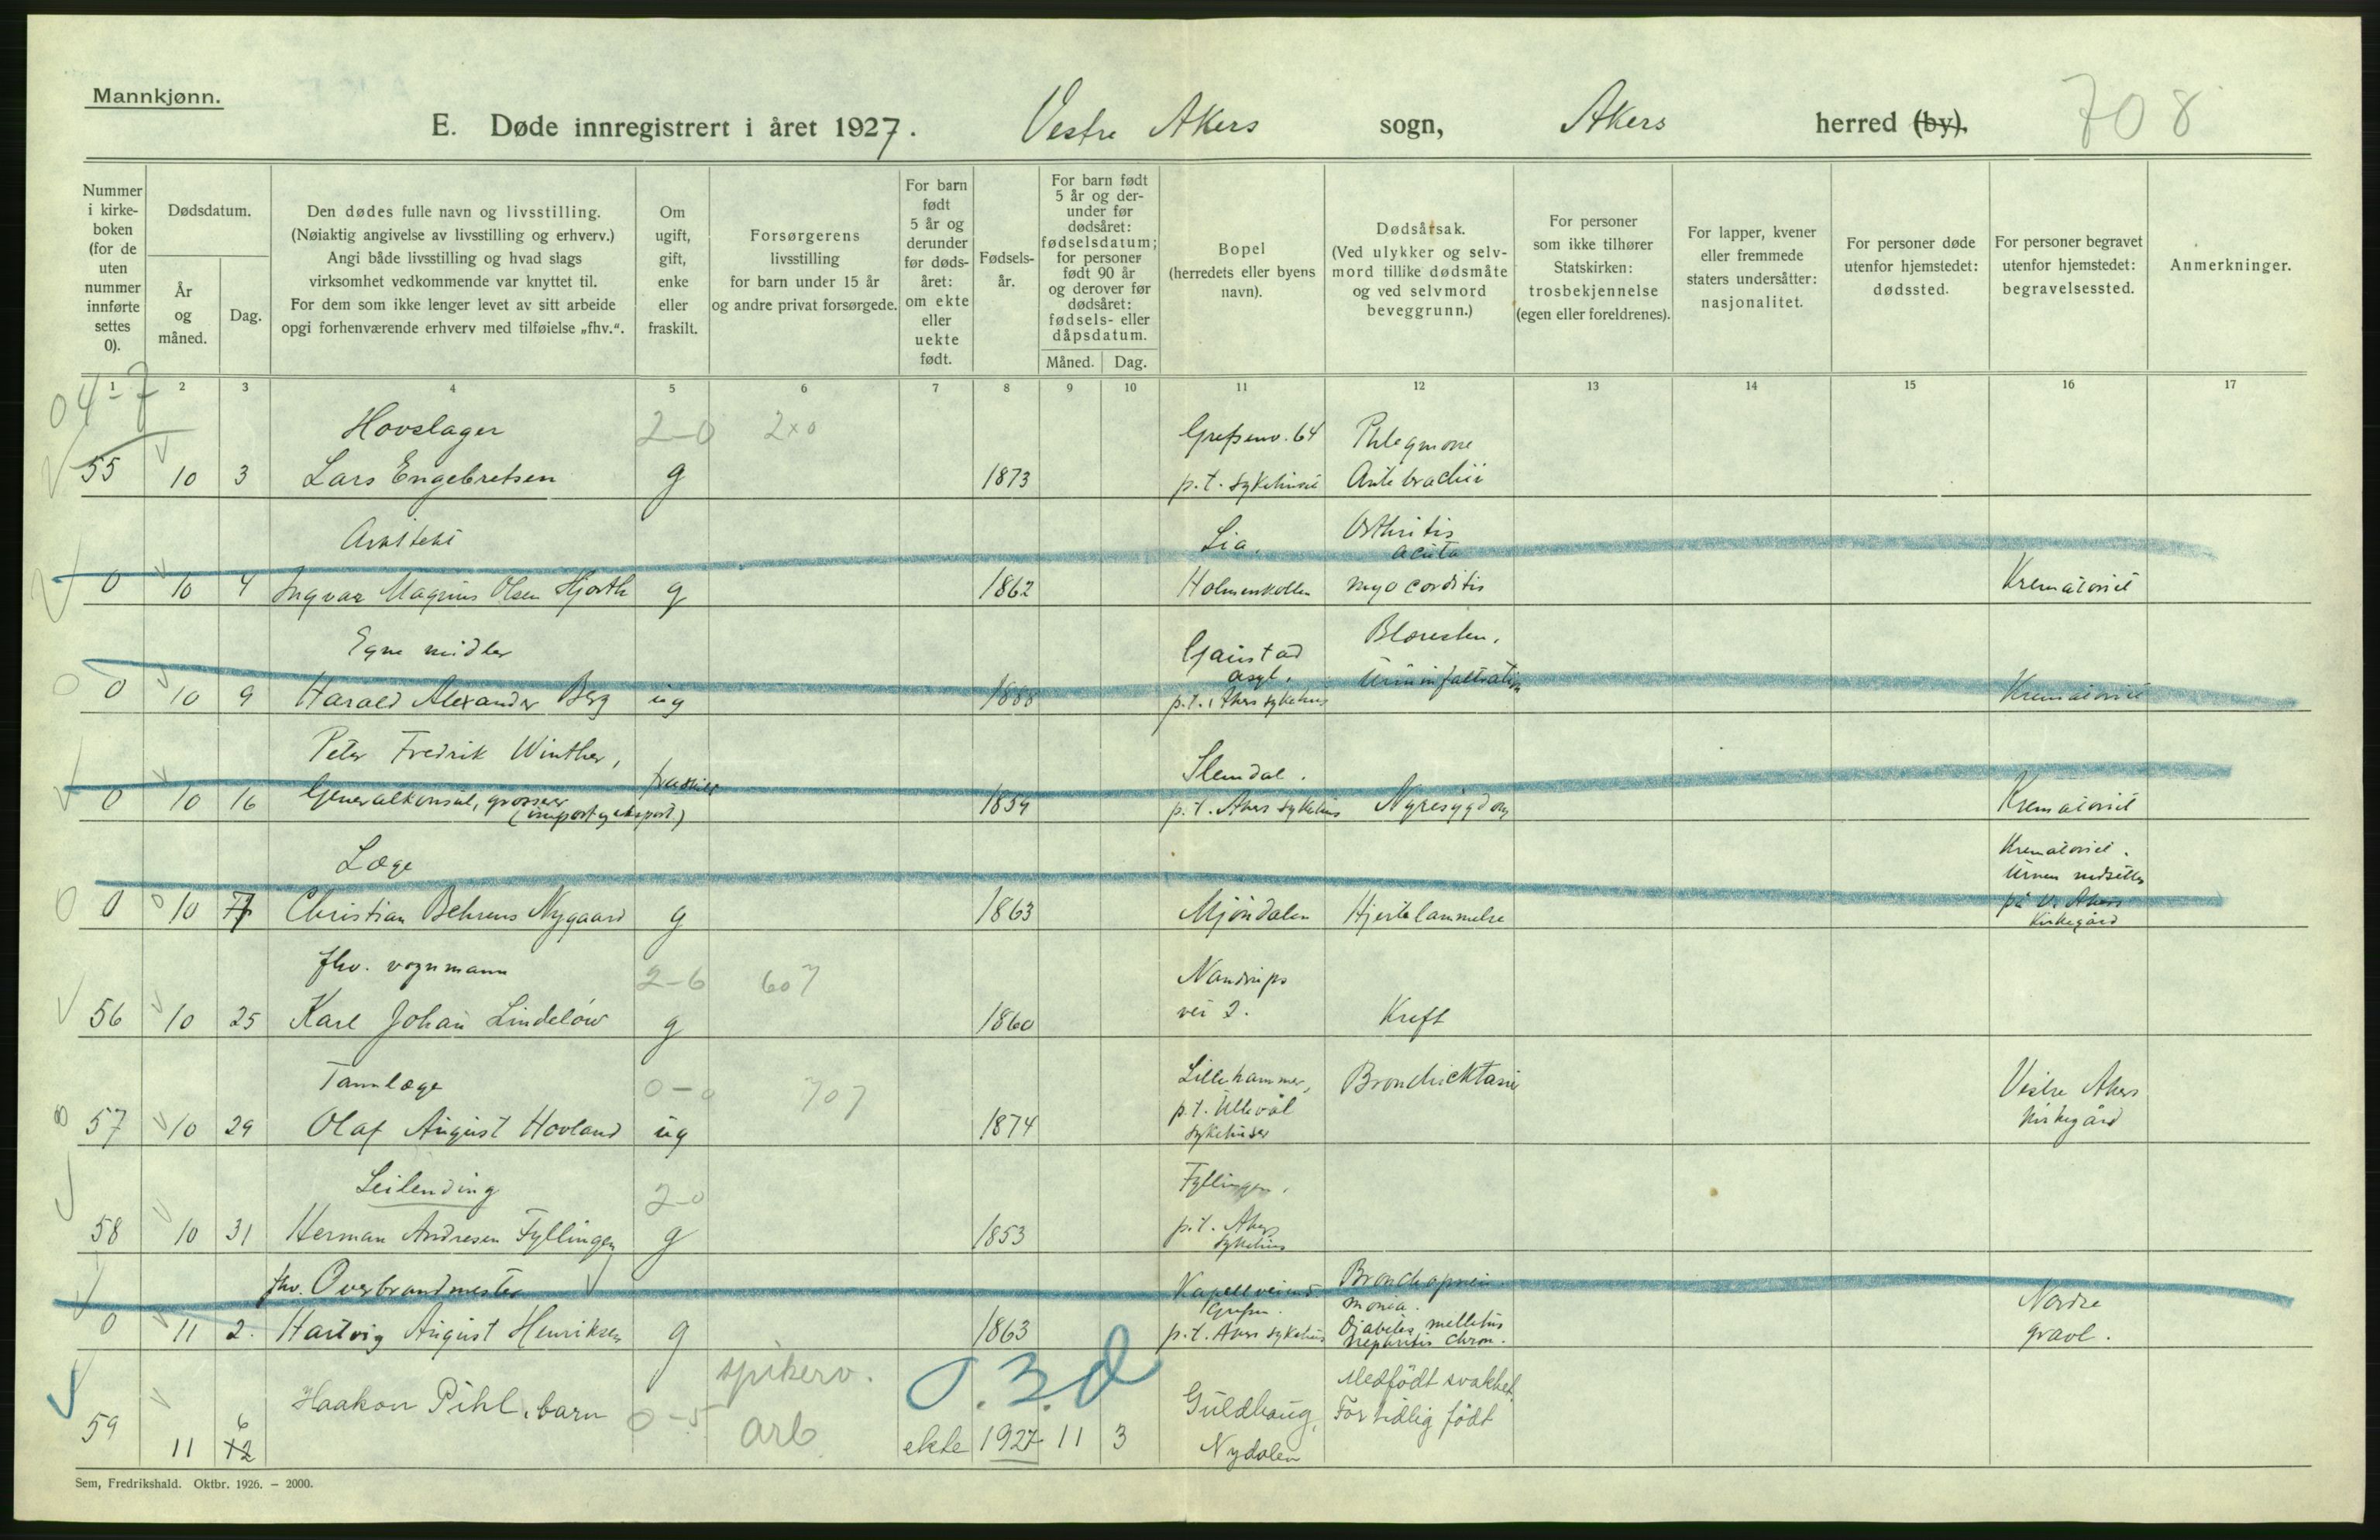 Mannkjønn.
E. Døde innregistrert i året 1927. Vestre Akers sogn, Akers herred (by).
708
Nummer i kirke-boken (for de uten nummer innførte settes 0).
Dødsdatum.
År og måned.
Dag.
Den dødes fulle navn og livsstilling.
(Nøiaktig angivelse av livsstilling og erhverv.)
Angi både livsstilling og hvad slags
virksomhet vedkommende var knyttet til.
For dem som ikke lenger levet av sitt arbeide
opgi forhenværende erhverv med tilføielse „fhv.“.
Om ugift, gift, enke eller fraskilt.
Forsørgerens
livsstilling
for barn under 15 år
og andre privat forsørgede.
For barn født 5 år og derunder før døds-året: om ekte eller uekte født.
Fødsels-år.
For barn født 5 år og der-under før dødsåret: fødselsdatum; for personer født 90 år og derover før dødsåret: fødsels- eller dåpsdatum.
Måned. Dag.
Bopel
(herredets eller byens
navn).
Dødsårsak.
(Ved ulykker og selv-
mord tillike dødsmåte
og ved selvmord
beveggrunn.)
For personer
som ikke tilhører
Statskirken:
trosbekjennelse
(egen eller foreldrenes).
For lapper, kvener
eller fremmede
staters undersåtter:
nasjonalitet.
For personer døde
utenfor hjemstedet:
dødssted.
For personer begravet
utenfor hjemstedet:
begravelsessted.
Anmerkninger.
1 2 3 4 5 6 7 8 9 10 11 12 13 14 15 16 17
04-7
Hovslager 2-0 2x0 Grefsenv. 64 Phlegmone
55 10 3 Lars Engebretsen g 1873 p.t. sykehuset Antibrachii
Arkitekt Lia, Arthritis
acuta
0 10 4 Ingvar Magnus Olsen Hjorth g 1862 Holmenkollen myocorditis Krematoriet
Egne midler Gaustad Blæresten,
asyl. Urininfiltration
0 10 9 Harald Alexander Berg ug 1888 p.t. Akers sykehus Krematoriet
Peter Fredrik Winther, fraskilt Slemdal.
0 10 16 Generalkonsul, grosserer 1859 p.t. Akers sykehus Nyresygdom Krematoriet
(import og eksport)
Læge Krematoriet.
Urnen nedsettes
0 10 17 Christian Behrens Nygaard g 1863 Mjöndalen Hjertelammelse på V. Akers
kirkegård
fhv. vognmann 2-6 607 Nandrups
56 10 25 Karl Johan Lindelöw g 1860 vei 2. Kreft
Tannlæge 0-0 707 Lillehammer, Bronchiektasie Vestre Akers
57 10 29 Olaf August Hovland ug 1874 p.t. Ullevål kirkegård
sykehuser
Leilending 2-0 Fyllingen,
58 10 31 Herman Andresen Fyllingen g 1853 p.t. Akers
sykehus
fhv. Overbrandmester Kapellveien Bronchopneu
Grefsen. monia. Nordre
0 11 2. Hartvig August Henriksen g 1863 p.t. Akers sykehus Diabetes mellitus gravl.
Nephritis chron.
spikerv. 0.3.d Medfödt svakhet.
Haakon Pihl, barn 0-5 arb Guldhaug, For tidlig födt
59 11 6 12 ekte 1927 11 3 Nydalen
Sem, Fredrikshald. Oktbr. 1926. – 2000.